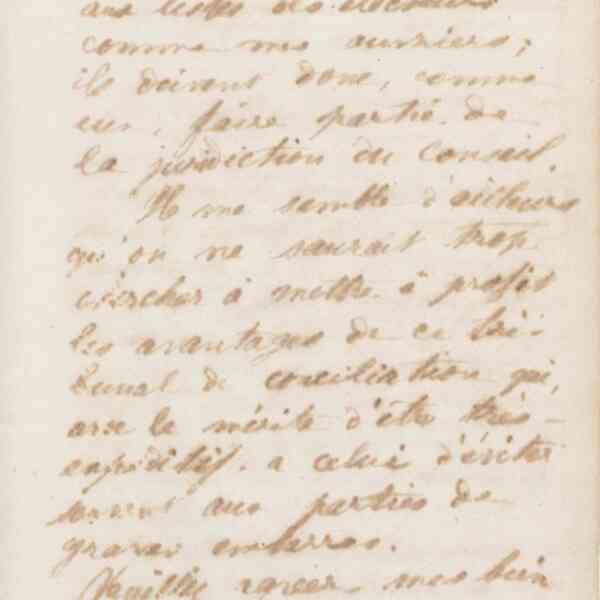 aux listes des électeurs
comme mes ouvriers;
ils doivent donc, comme
eux, faire partie de
la juridiction du Conseil.
Il me semble d'ailleurs
qu'on ne saurait trop
chercher à mettre à profit
les avantages de ce tri-
bunal de conciliation qui,
avec le mérite d'être très-
expéditif, a celui d'éviter
souvent aux parties de
graves embarras.
Veuillez agréer, mes bien